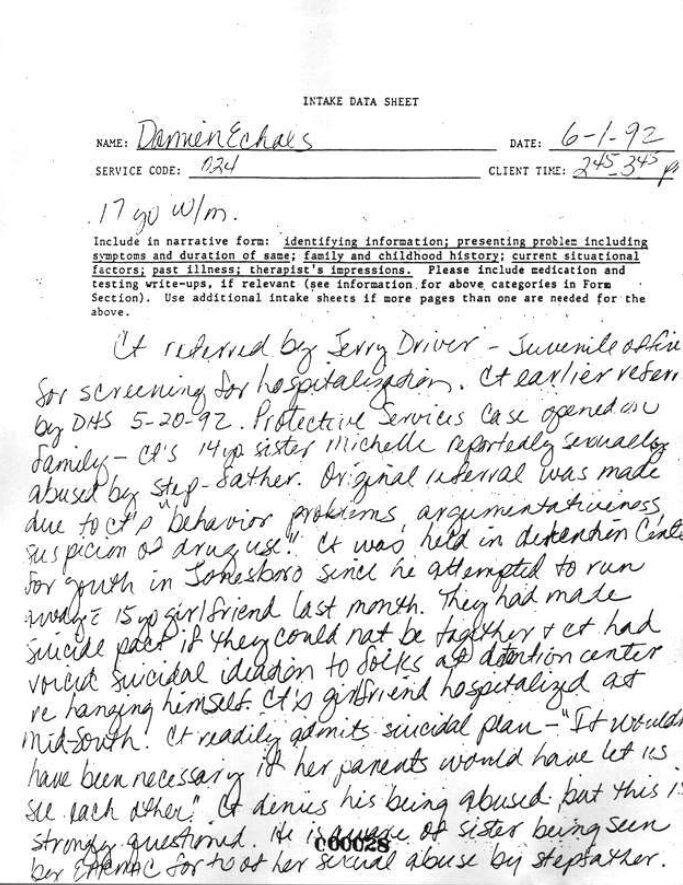 INTAKE DATA SHEET
NAME: Damien Echols DATE: 6-1-92
SERVICE CODE: 024 CLIENT TIME: 245-345 p
17 yo w/m.
Include in narrative form: identifying information; presenting problem including
symptoms and duration of same; family and childhood history; current situational
factors; past illness; therapist's impressions. Please include medication and
testing write-ups, if relevant (see information for above categories in Form
Section). Use additional intake sheets if more pages than one are needed for the
above.
Ct referred by Jerry Driver - Juvenile office
for screening for hospitalization. Ct earlier referr
by DHS 5-20-92. Protective Services Case opened on
family - Ct's 14 yo sister Michelle reportedly sexually
abused by step-father. Original referral was made
due to ct's "behavior problems, argumentativeness,
suspicion of drug use." Ct was held in detention Cente
for youth in Jonesboro since he attempted to run
away c̄ 15 yo girlfriend last month. They had made
suicide pact if they could not be together & ct had
voiced suicidal ideation to folks at detention center
re hanging himself. Ct's girlfriend hospitalized at
Mid-South. Ct readily admits suicidal plan - "It wouldn
have been necessary if her parents would have let us
see each other." Ct denies his being abused but this is
strongly questioned. He is aware of sister being seen
by EARMHC for of her sexual abuse by stepfather.
000028